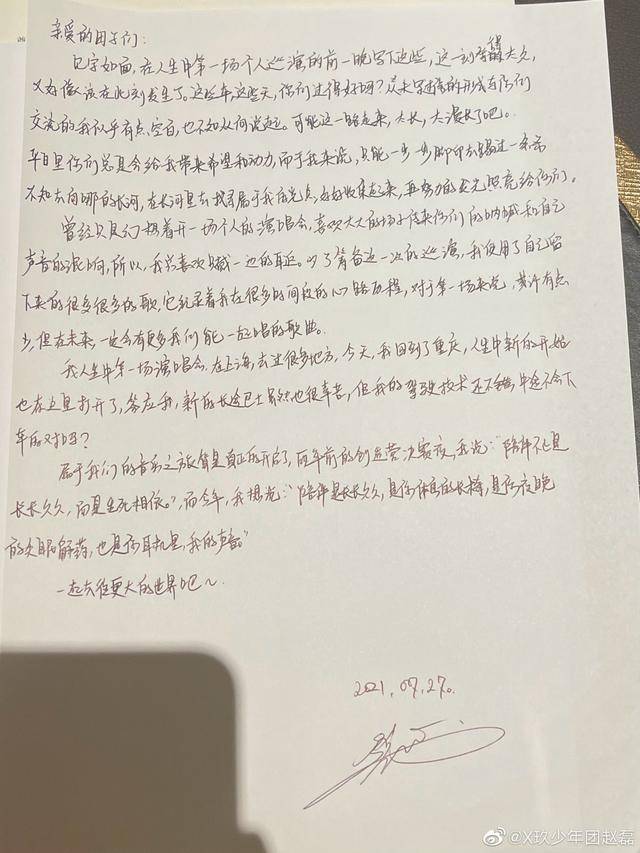 亲爱的团子们：
见字如面，在人生中第一场个人巡演的前一晚写下这些，这一刻等得太久，
又好像该在此刻发生了。这些年，这些天，你们过得好吗？从未写过信的形式与你们
交流的我似乎有点空白，也不知从何说起。可能这一路走来，太长，太漫长了吧。
平日里你们总是会给我带来希望和动力，而于我来说，只能一步一步脚印去踏过一条示
不知去向哪的长河，在长河里去找寻属于我在光点，好好收集起来，再努力的发光照亮给你们。
曾经只是幻想着开一场个人的演唱会，喜欢大大的场子传来你们的呐喊和自己
声音的混响，所以，我总喜欢摘一边的耳返。为了筹备这一次的巡演，我使用了自己留
下来的很多很多的歌，它纪录着我在很多时间段的心路历程，对于第一场来说，或许有点
少，但在未来，一定会有更多我们能一起唱的歌曲。
我人生中第一场演唱会，在上海，去过很多地方，今天，我回到了重庆，人生中新的开始
也在这里打开了，答应我，新的长途巴士虽然也很辛苦，但我的驾驶技术还不错，中途不会下
车的对吗？
属于我们的音乐之旅算是真正的开启了，两年前的创造营决赛夜，我说：“陪伴不止是
长长久久，而是生死相依。”，而今年，我想说：“陪伴是长长久久，是你休息的长椅，是你夜晚
的失眠解药，也是你耳机里，我的声音。”
一起去往更大的世界吧～
2021.09.27。
@X玖少年团赵磊